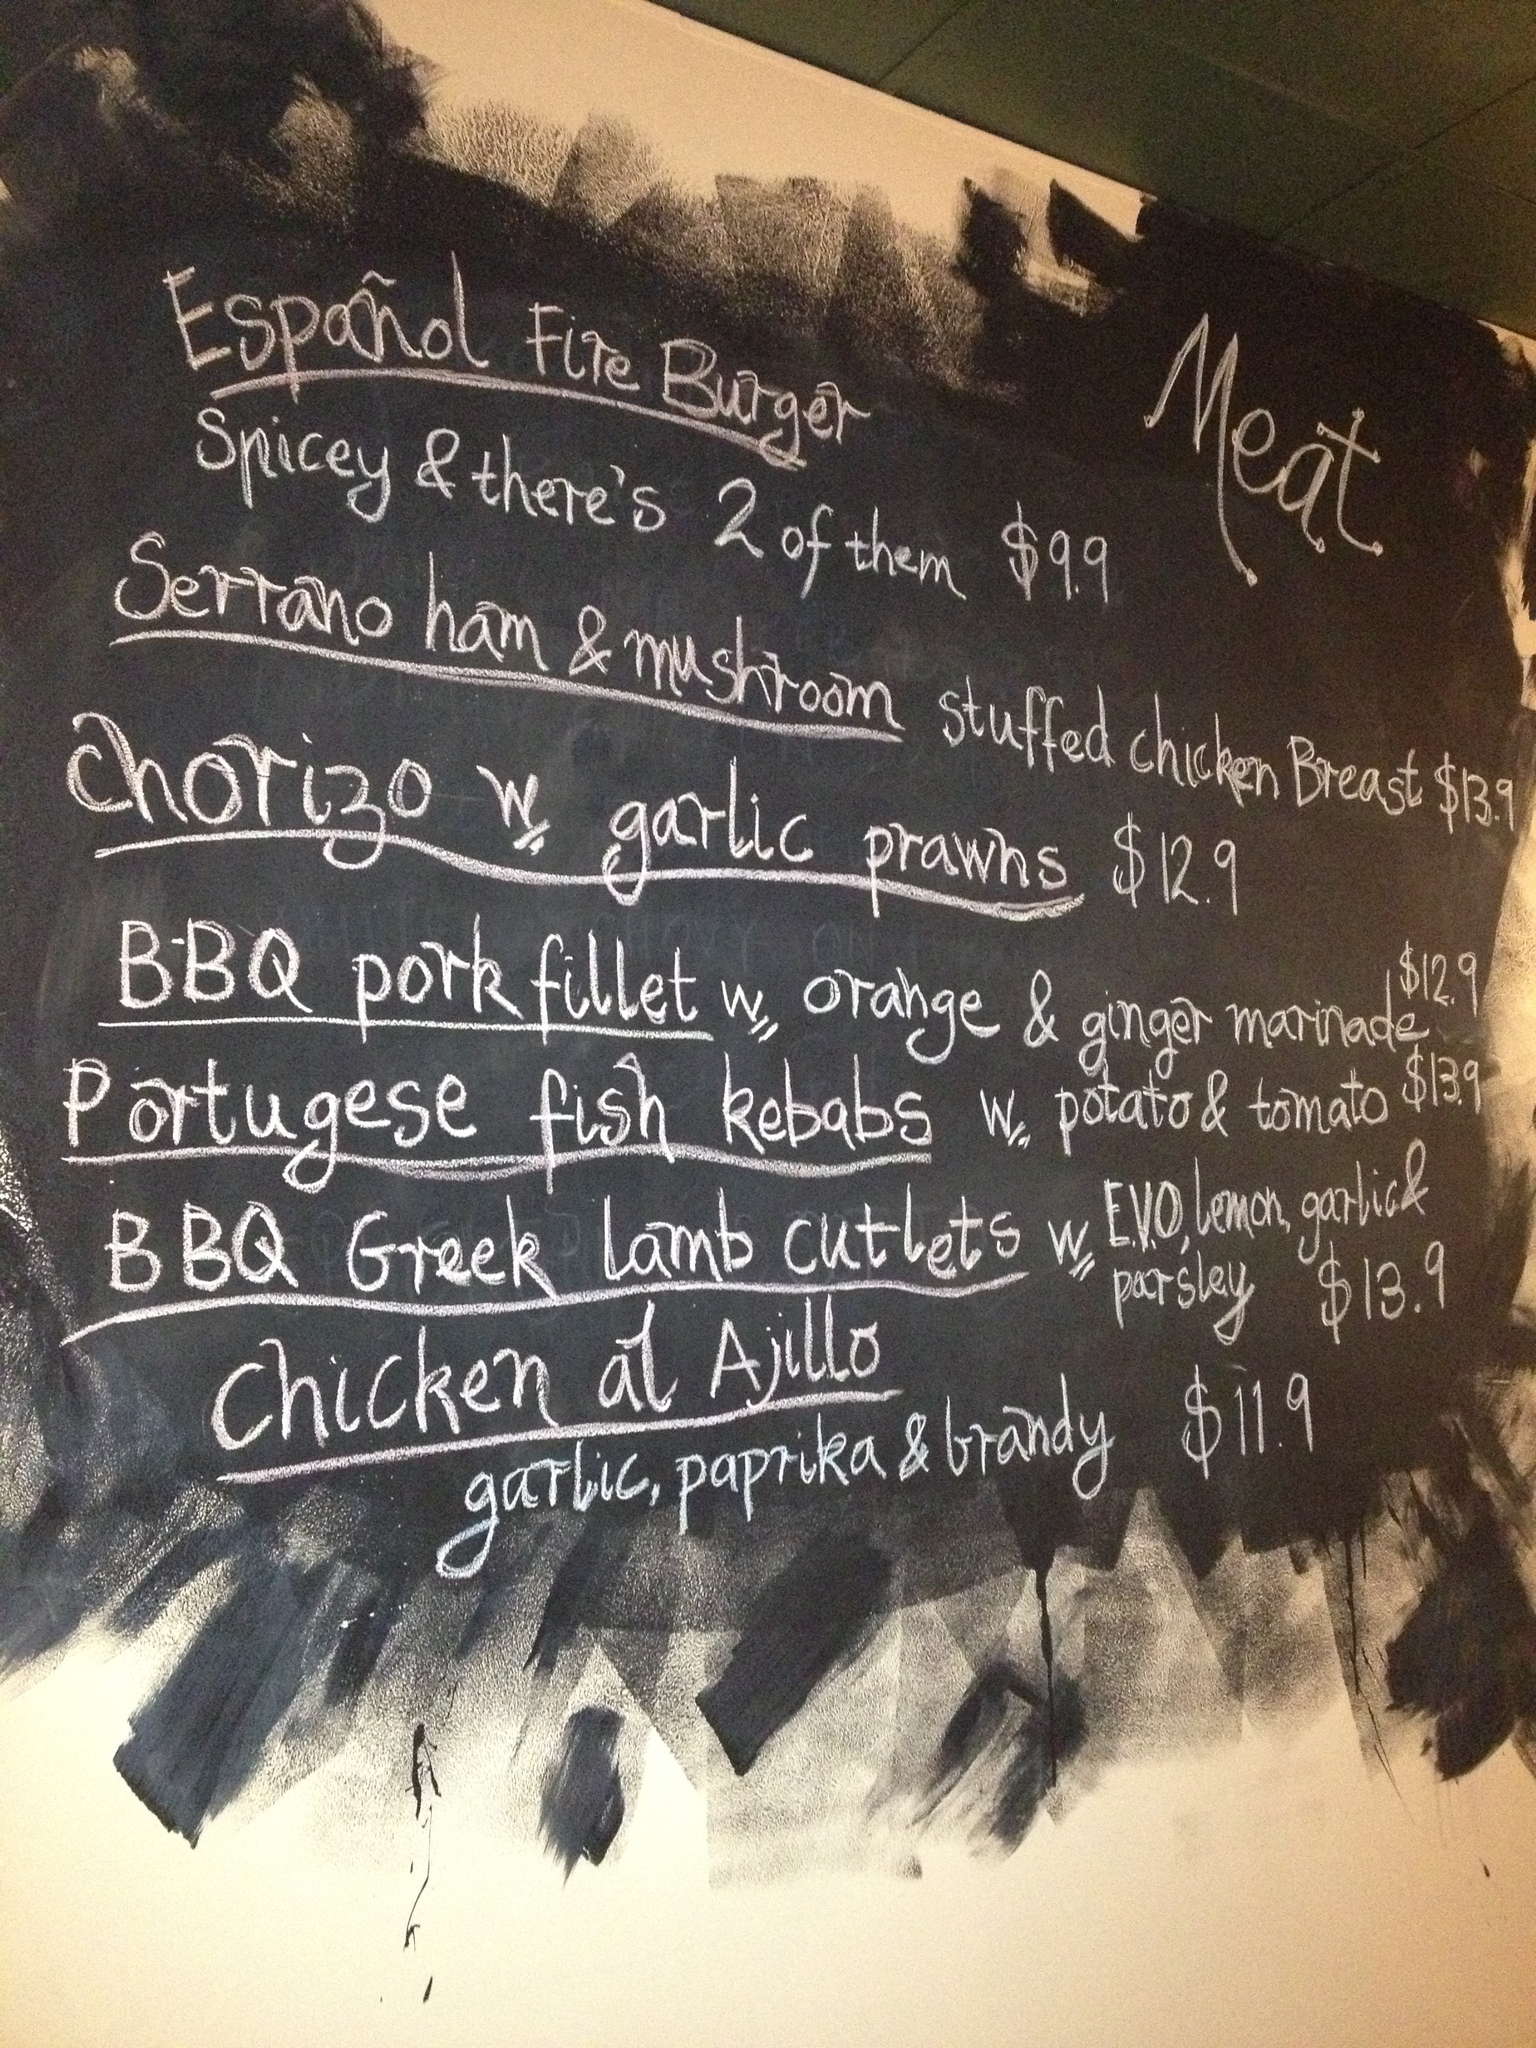 Meat
Español Fire Burger
Spicey & there's 2 of them $9.9
Serrano ham & mushroom stuffed chicken Breast $13.9
Chorizo w garlic prawns $12.9
B-BQ pork fillet w orange & ginger marinade $12.9
Portugese fish kebabs w potato & tomato $13.9
BBQ Greek lamb cutlets w E.V.O, lemon, garlic &
parsley $13.9
Chicken al Ajillo
garlic, paprika & brandy $11.9